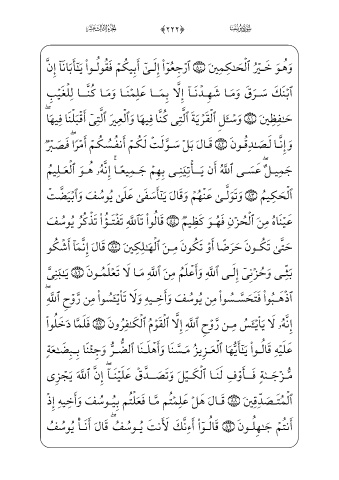 وَهُوَ خَيْرُ ٱلْحَـٰكِمِينَ ۝ ٱرْجِعُوٓا۟ إِلَىٰٓ أَبِيكُمْ فَقُولُوا۟ يَـٰٓأَبَانَآ إِنَّ
ٱبْنَكَ سَرَقَ وَمَا شَهِدْنَآ إِلَّا بِمَا عَلِمْنَا وَمَا كُنَّا لِلْغَيْبِ
حَـٰفِظِينَ ۝ وَسْـَٔلِ ٱلْقَرْيَةَ ٱلَّتِى كُنَّا فِيهَا وَٱلْعِيرَ ٱلَّتِىٓ أَقْبَلْنَا فِيهَا ۖ
وَإِنَّا لَصَـٰدِقُونَ ۝ قَالَ بَلْ سَوَّلَتْ لَكُمْ أَنفُسُكُمْ أَمْرًا ۖ فَصَبْرٌ
جَمِيلٌ ۖ عَسَى ٱللَّهُ أَن يَأْتِيَنِى بِهِمْ جَمِيعًا ۚ إِنَّهُۥ هُوَ ٱلْعَلِيمُ
ٱلْحَكِيمُ ۝ وَتَوَلَّىٰ عَنْهُمْ وَقَالَ يَـٰٓأَسَفَىٰ عَلَىٰ يُوسُفَ وَٱبْيَضَّتْ
عَيْنَاهُ مِنَ ٱلْحُزْنِ فَهُوَ كَظِيمٌ ۝ قَالُوا۟ تَٱللَّهِ تَفْتَؤُا۟ تَذْكُرُ يُوسُفَ
حَتَّىٰ تَكُونَ حَرَضًا أَوْ تَكُونَ مِنَ ٱلْهَـٰلِكِينَ ۝ قَالَ إِنَّمَآ أَشْكُوا۟
بَثِّى وَحُزْنِىٓ إِلَى ٱللَّهِ وَأَعْلَمُ مِنَ ٱللَّهِ مَا لَا تَعْلَمُونَ ۝ يَـٰبَنِىَّ
ٱذْهَبُوا۟ فَتَحَسَّسُوا۟ مِن يُوسُفَ وَأَخِيهِ وَلَا تَا۟يْـَٔسُوا۟ مِن رَّوْحِ ٱللَّهِ ۖ
إِنَّهُۥ لَا يَا۟يْـَٔسُ مِن رَّوْحِ ٱللَّهِ إِلَّا ٱلْقَوْمُ ٱلْكَـٰفِرُونَ ۝ فَلَمَّا دَخَلُوا۟
عَلَيْهِ قَالُوا۟ يَـٰٓأَيُّهَا ٱلْعَزِيزُ مَسَّنَا وَأَهْلَنَا ٱلضُّرُّ وَجِئْنَا بِبِضَـٰعَةٍ
مُّزْجَىٰةٍ فَأَوْفِ لَنَا ٱلْكَيْلَ وَتَصَدَّقْ عَلَيْنَآ ۖ إِنَّ ٱللَّهَ يَجْزِى
ٱلْمُتَصَدِّقِينَ ۝ قَالَ هَلْ عَلِمْتُم مَّا فَعَلْتُم بِيُوسُفَ وَأَخِيهِ إِذْ
أَنتُمْ جَـٰهِلُونَ ۝ قَالُوٓا۟ أَءِنَّكَ لَأَنتَ يُوسُفُ ۖ قَالَ أَنَا۠ يُوسُفُ